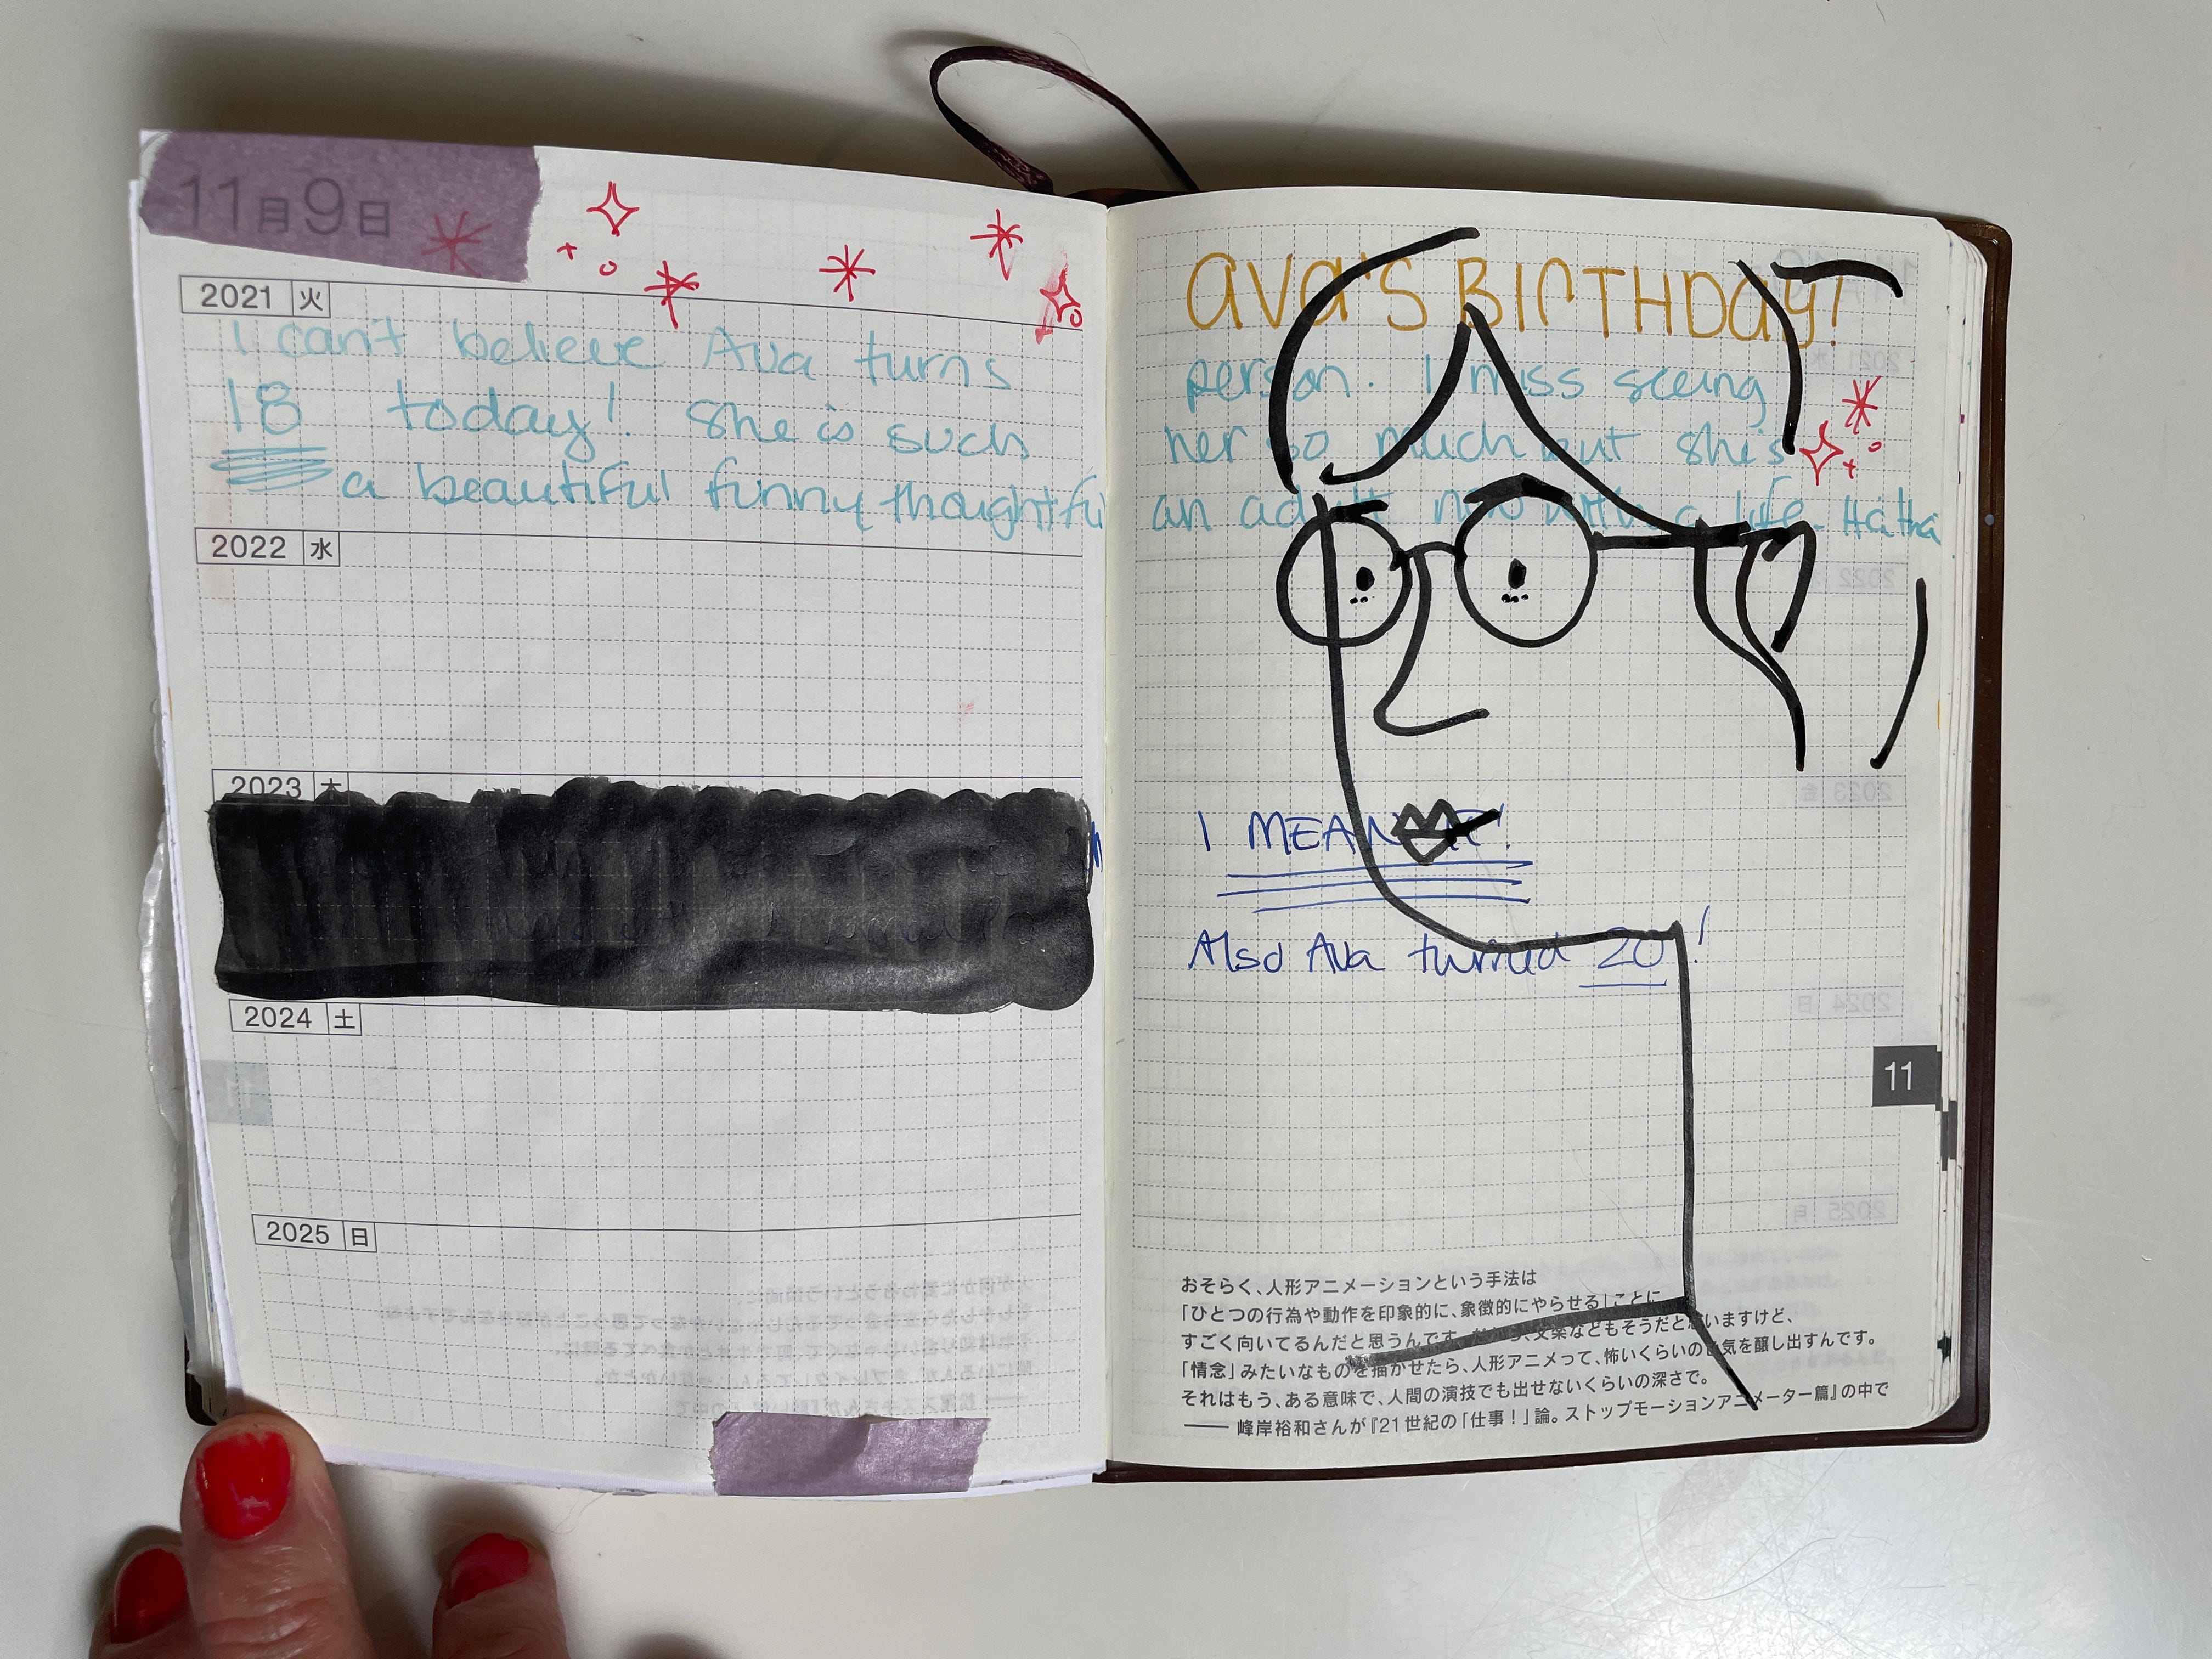 11月9日
2021 火
I can't believe Ava turns
18 today! She is such
a beautiful funny thoughtful
2022 水
2023 木
2024 土
2025 日
ava's BIrTHDay!
person. I miss seeing
her so much but she's
an adult now with a life. Ha Ha
I MEAN IT!
Also Ava turned 20!
11
おそらく、人形アニメーションという手法は
「ひとつの行為や動作を印象的に、象徴的にやらせる」ことに
すごく向いてるんだと思うんです。だから、文楽などもそうだと思いますけど、
「情念」みたいなものを描かせたら、人形アニメって、怖いくらいの色気を醸し出すんです。
それはもう、ある意味で、人間の演技でも出せないくらいの深さで。
── 峰岸裕和さんが『21世紀の「仕事！」論。ストップモーションアニメーター篇』の中で